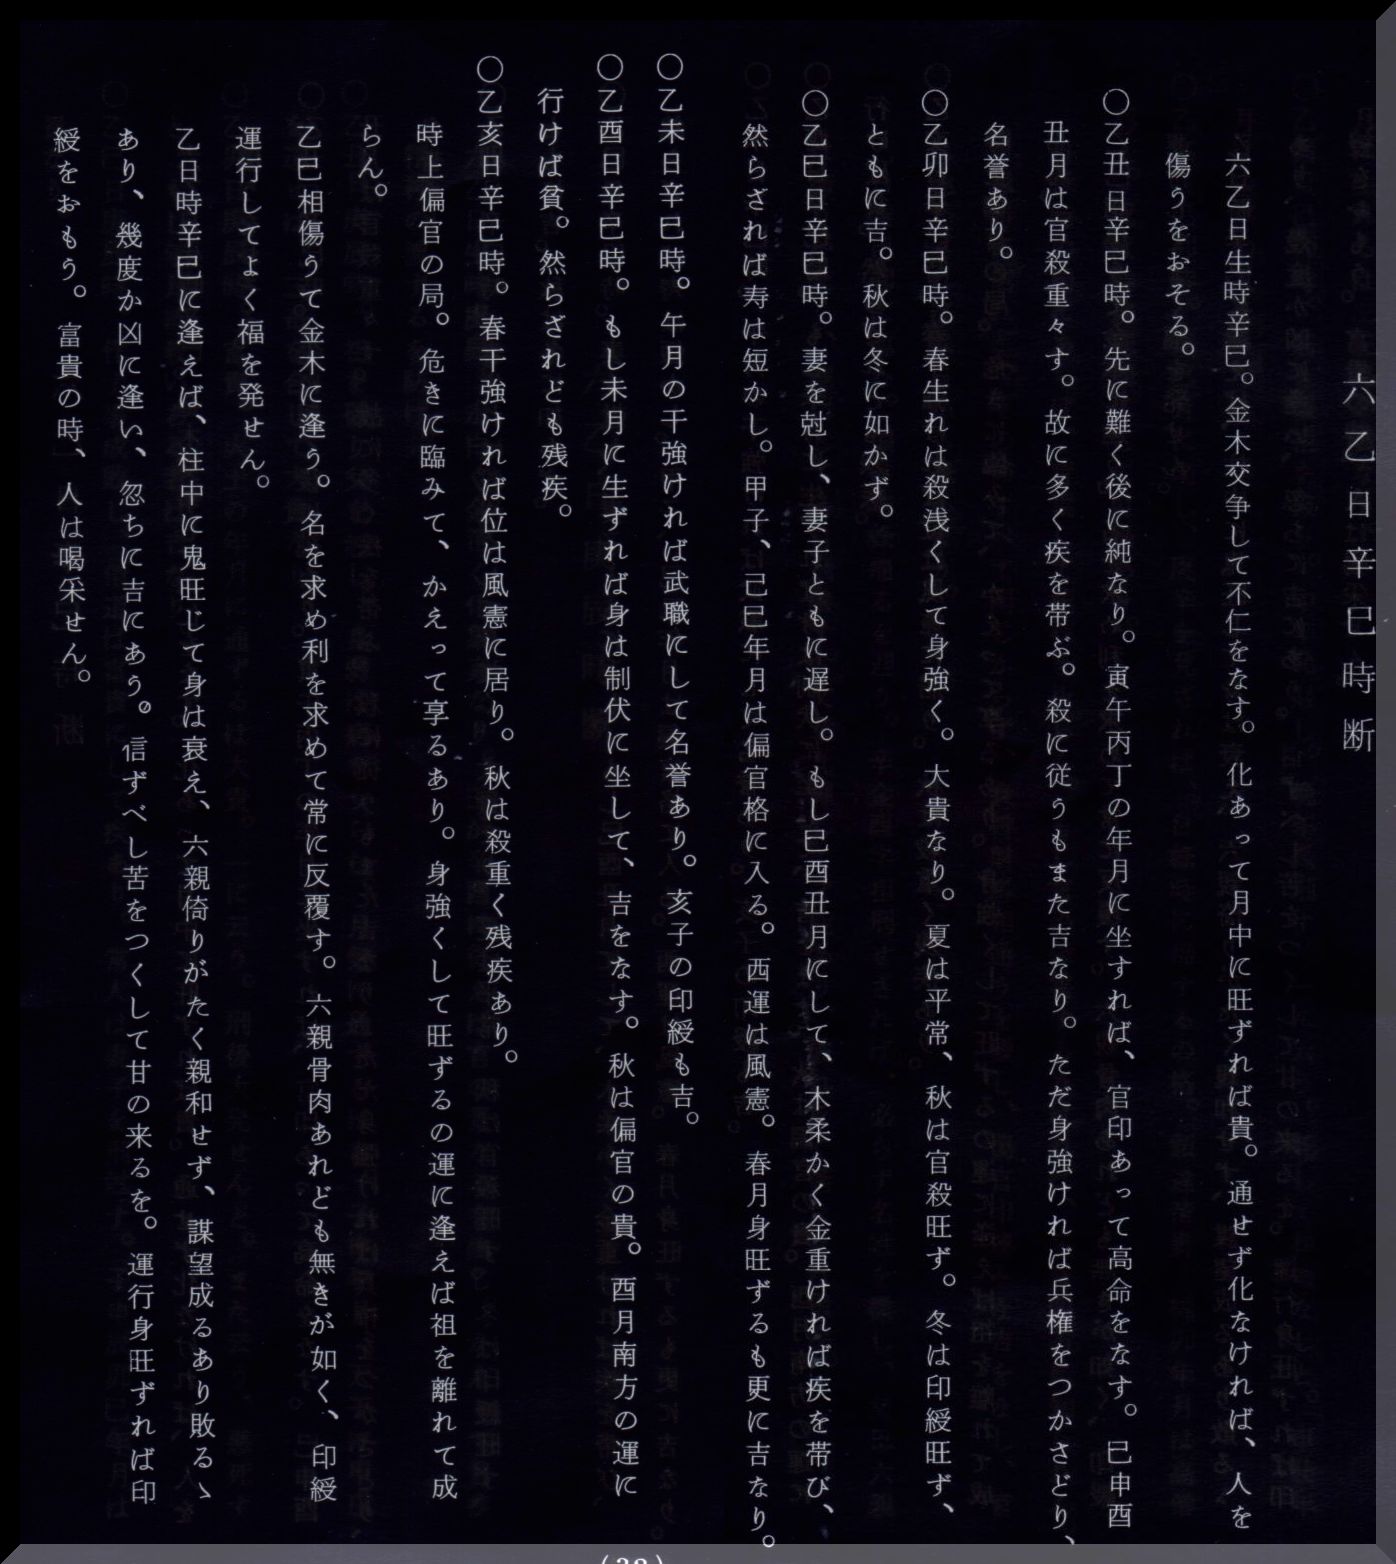 六乙日辛巳時断
六乙日生時辛巳。金木交争して不仁をなす。化あって月中に旺ずれば貴。通せず化なければ、人を
傷うをおそる。
〇乙丑日辛巳時。先に難く後に純なり。寅午丙丁の年月に坐すれば、官印あって高命をなす。巳申酉
丑月は官殺重々す。故に多く疾を帯ぶ。殺に従うもまた吉なり。ただ身強ければ兵権をつかさどり、
名誉あり。
〇乙卯日辛巳時。春生れは殺浅くして身強く。大貴なり。夏は平常、秋は官殺旺ず。冬は印綬旺ず、
ともに吉。秋は冬に如かず。
〇乙巳日辛巳時。妻を尅し、妻子ともに遅し。もし巳酉丑月にして、木柔かく金重ければ疾を帯び、
然らざれば寿は短かし。甲子、己巳年月は偏官格に入る。西運は風憲。春月身旺ずるも更に吉なり。
〇乙未日辛巳時。午月の干強ければ武職にして名誉あり。亥子の印綬も吉。
〇乙酉日辛巳時。もし未月に生ずれば身は制伏に坐して、吉をなす。秋は偏官の貴。酉月南方の運に
行けば貧。然らざれども残疾。
〇乙亥日辛巳時。春干強ければ位は風憲に居り。秋は殺重く残疾あり。
時上偏官の局。危きに臨みて、かえって享るあり。身強くして旺ずるの運に逢えば祖を離れて成
らん。
乙巳相傷うて金木に逢う。名を求め利を求めて常に反覆す。六親骨肉あれども無きが如く、印綬
運行してよく福を発せん。
乙日時辛巳に逢えば、柱中に鬼旺じて身は衰え、六親倚りがたく親和せず、謀望成るあり敗るゝ
あり、幾度か凶に逢い、忽ちに吉にあう。信ずべし苦をつくして甘の来るを。運行身旺ずれば印
綬をおもう。富貴の時、人は喝采せん。